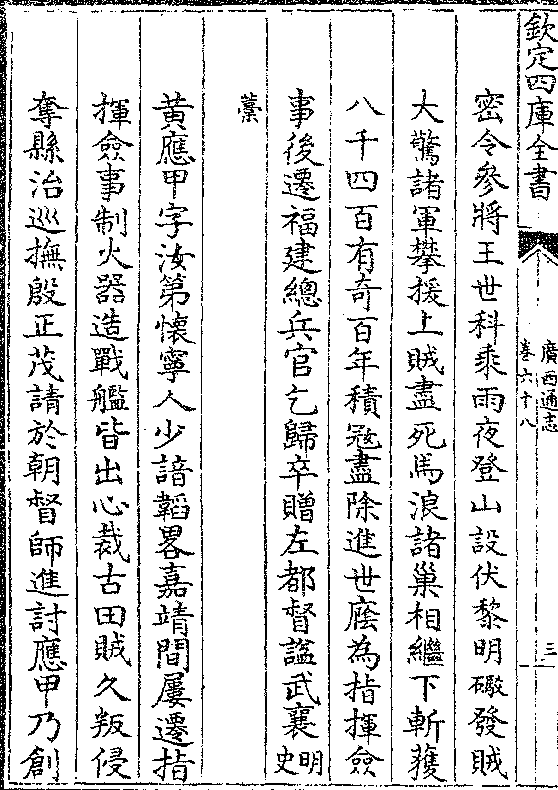 欽定四庫全書
廣西通志
卷六十八
三
密令參將王世科乘雨夜登山設伏黎明礮發賊
大驚諸軍攀援上賊盡死馬浪諸巢相繼下斬獲
八千四百有奇百年積冦盡除進世廕為指揮僉
事後遷福建總兵官乞歸卒贈左都督謚武襄明史
藁
黄應甲字汝第懷寧人少諳韜畧嘉靖間屢遷指
揮僉事制火器造戰艦皆出心裁古田賊久叛侵
奪縣治巡撫殷正茂請於朝督師進討應甲乃創